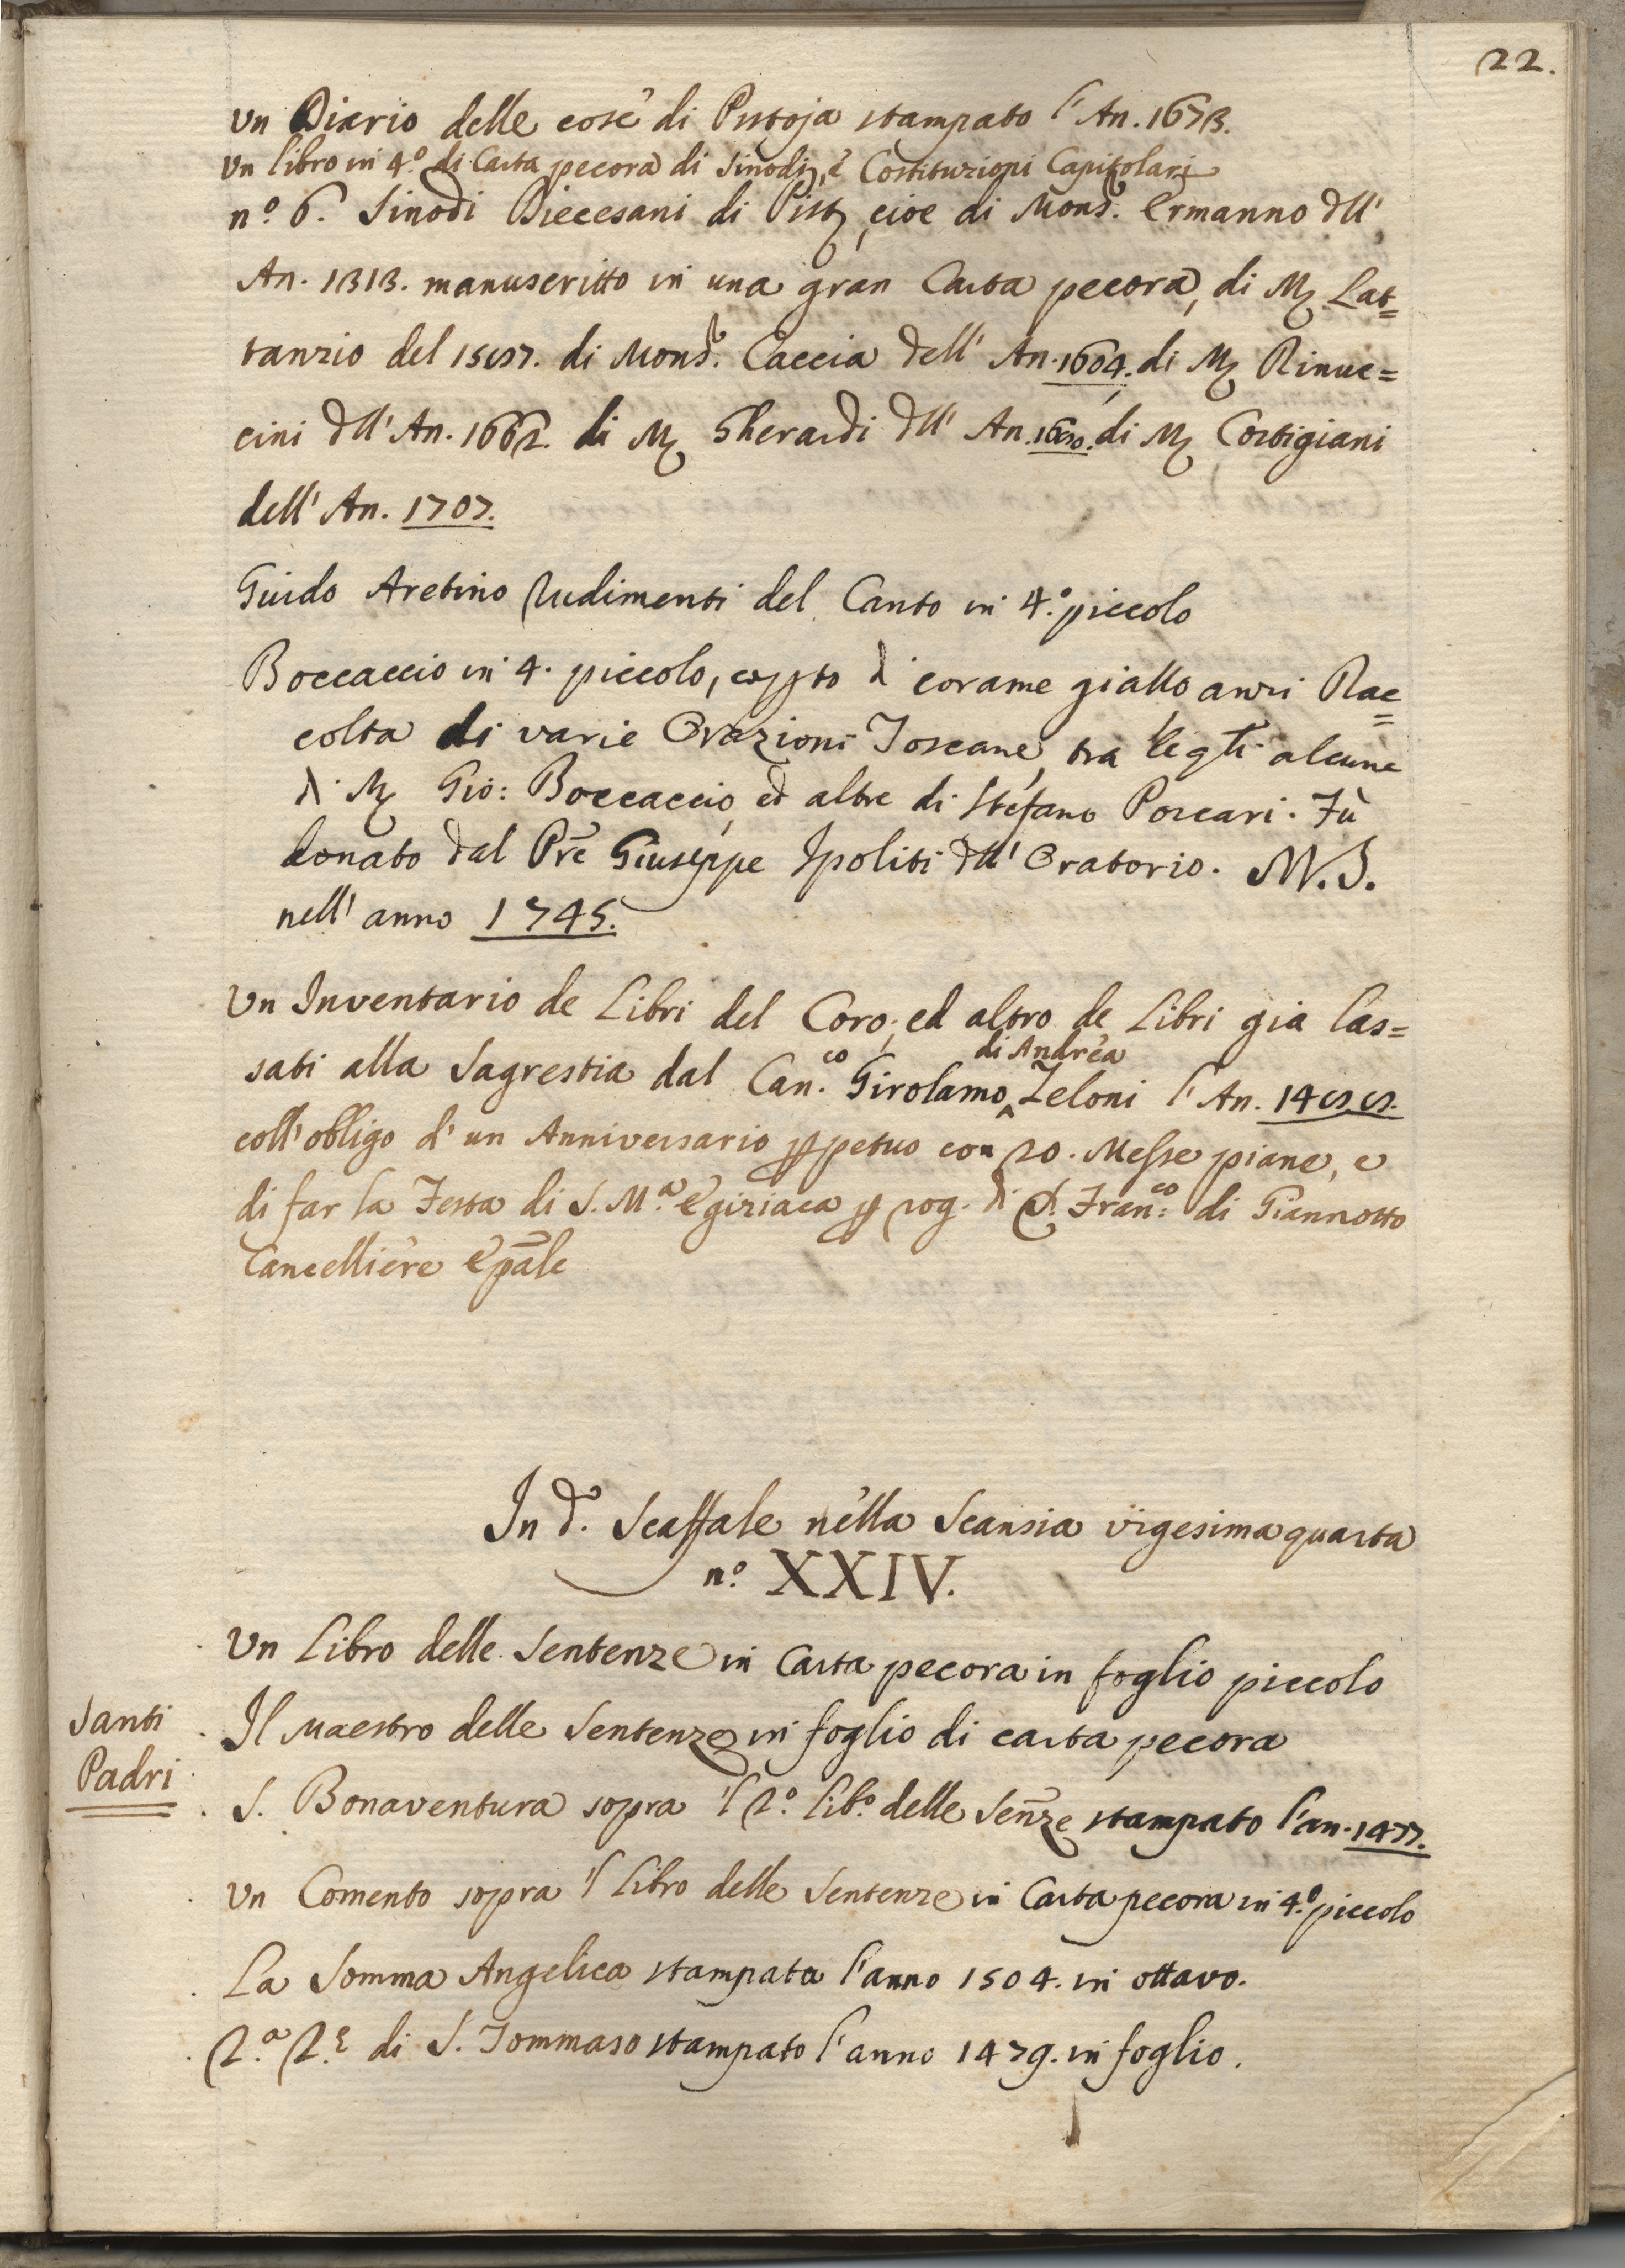 22.
Un Diario delle cose di Pistoja stampato l'An. 1673.
Un libro in 4.º di Carta pecora di Sinodi, e Costituzioni Capitolari
nº. 6. Sinodi Diecesani di Pist. cioe di Mons.r Ermanno dll'
An. 1313. manuscritto in una gran Carta pecora, di M. Lat=
tanzio del 1587. di Mons.r Caccia dell' An. 1604. di M. Rinuc=
cini dll' An. 1662. di M. Gherardi dll' An. 1680. di M. Cortigiani
dell' An. 1707.
Guido Aretino Rudimenti del Canto in 4.º piccolo
Boccaccio in 4. piccolo, copto di corame giallo anzi Rac=
colta di varie Orazioni Toscane, tra leqli alcune
di M. Gio: Boccaccio, ed altre di Stefano Porcari. Fù
donato dal Pre Giuseppe Ipoliti dll' Oratorio. M.S.
nell' anno 1745.
Un Inventario de Libri del Coro; ed altro de Libri gia las=
sati alla Sagrestia dal Can.co Girolamo di Andrea Zeloni l'An. 1488.
coll'obligo d'un Anniversario ppetuo con 20. Messe piane, e
di far la Festa di S. M.a Egiziaca p rog. di S. Fran.co di Giannotto
Cancelliere Epale
In d.o Scaffale nella Scansia vigesimaquarta
nº. XXIV.
Un Libro delle Sentenze in Carta pecora in foglio piccolo
Santi
Padri
Il Maestro delle Sentenze in foglio di carta pecora
S. Bonaventura sopra il 2º. lib.º delle Senze stampato l'an. 1477.
Un Comento sopra il Libro delle Sentenze in Carta pecora in 4.º piccolo
La Somma Angelica stampata l'anno 1504. in ottavo.
2.a 2.e di S. Tommaso stampato l'anno 1479. in foglio.